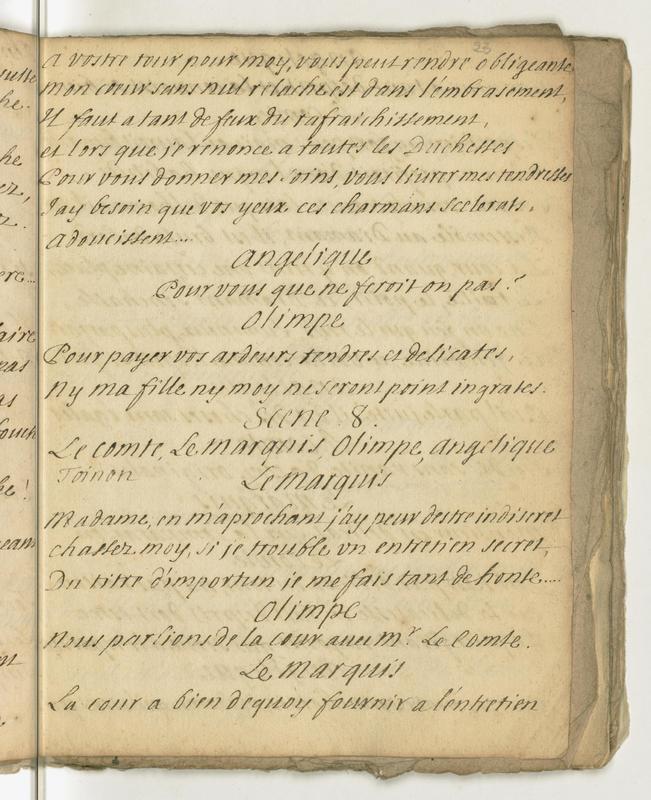 23
A vostre tour pour moy, vous peut rendre obligeante
mon cœur sans nul relache est dans l'embrasement,
Il faut a tant de feux du rafraichissement,
et lors que je renonce a toutes les Duchesses
Pour vous donner mes soins, vous livrer mes tendresses
J'ay besoin que vos yeux ces charmans scelerats,
adoucissent....
angelique
Pour vous que ne feroit on pas?
Olimpe
Pour payer vos ardeurs tendres et delicates,
Ny ma fille ny moy ne seront point ingrates.
Scene 8.
Le comte, Le marquis, Olimpe, angelique
Toinon
Le marquis
Madame, en m'aprochant j'ay peur destre indiscret
chassez moy, si je trouble un entretien secret,
Du titre d'importun je me fais tant de honte....
Olimpe
Nous parlions de la cour avec mr. Le Comte.
Le marquis
La cour a bien dequoy fournir a l'entretien